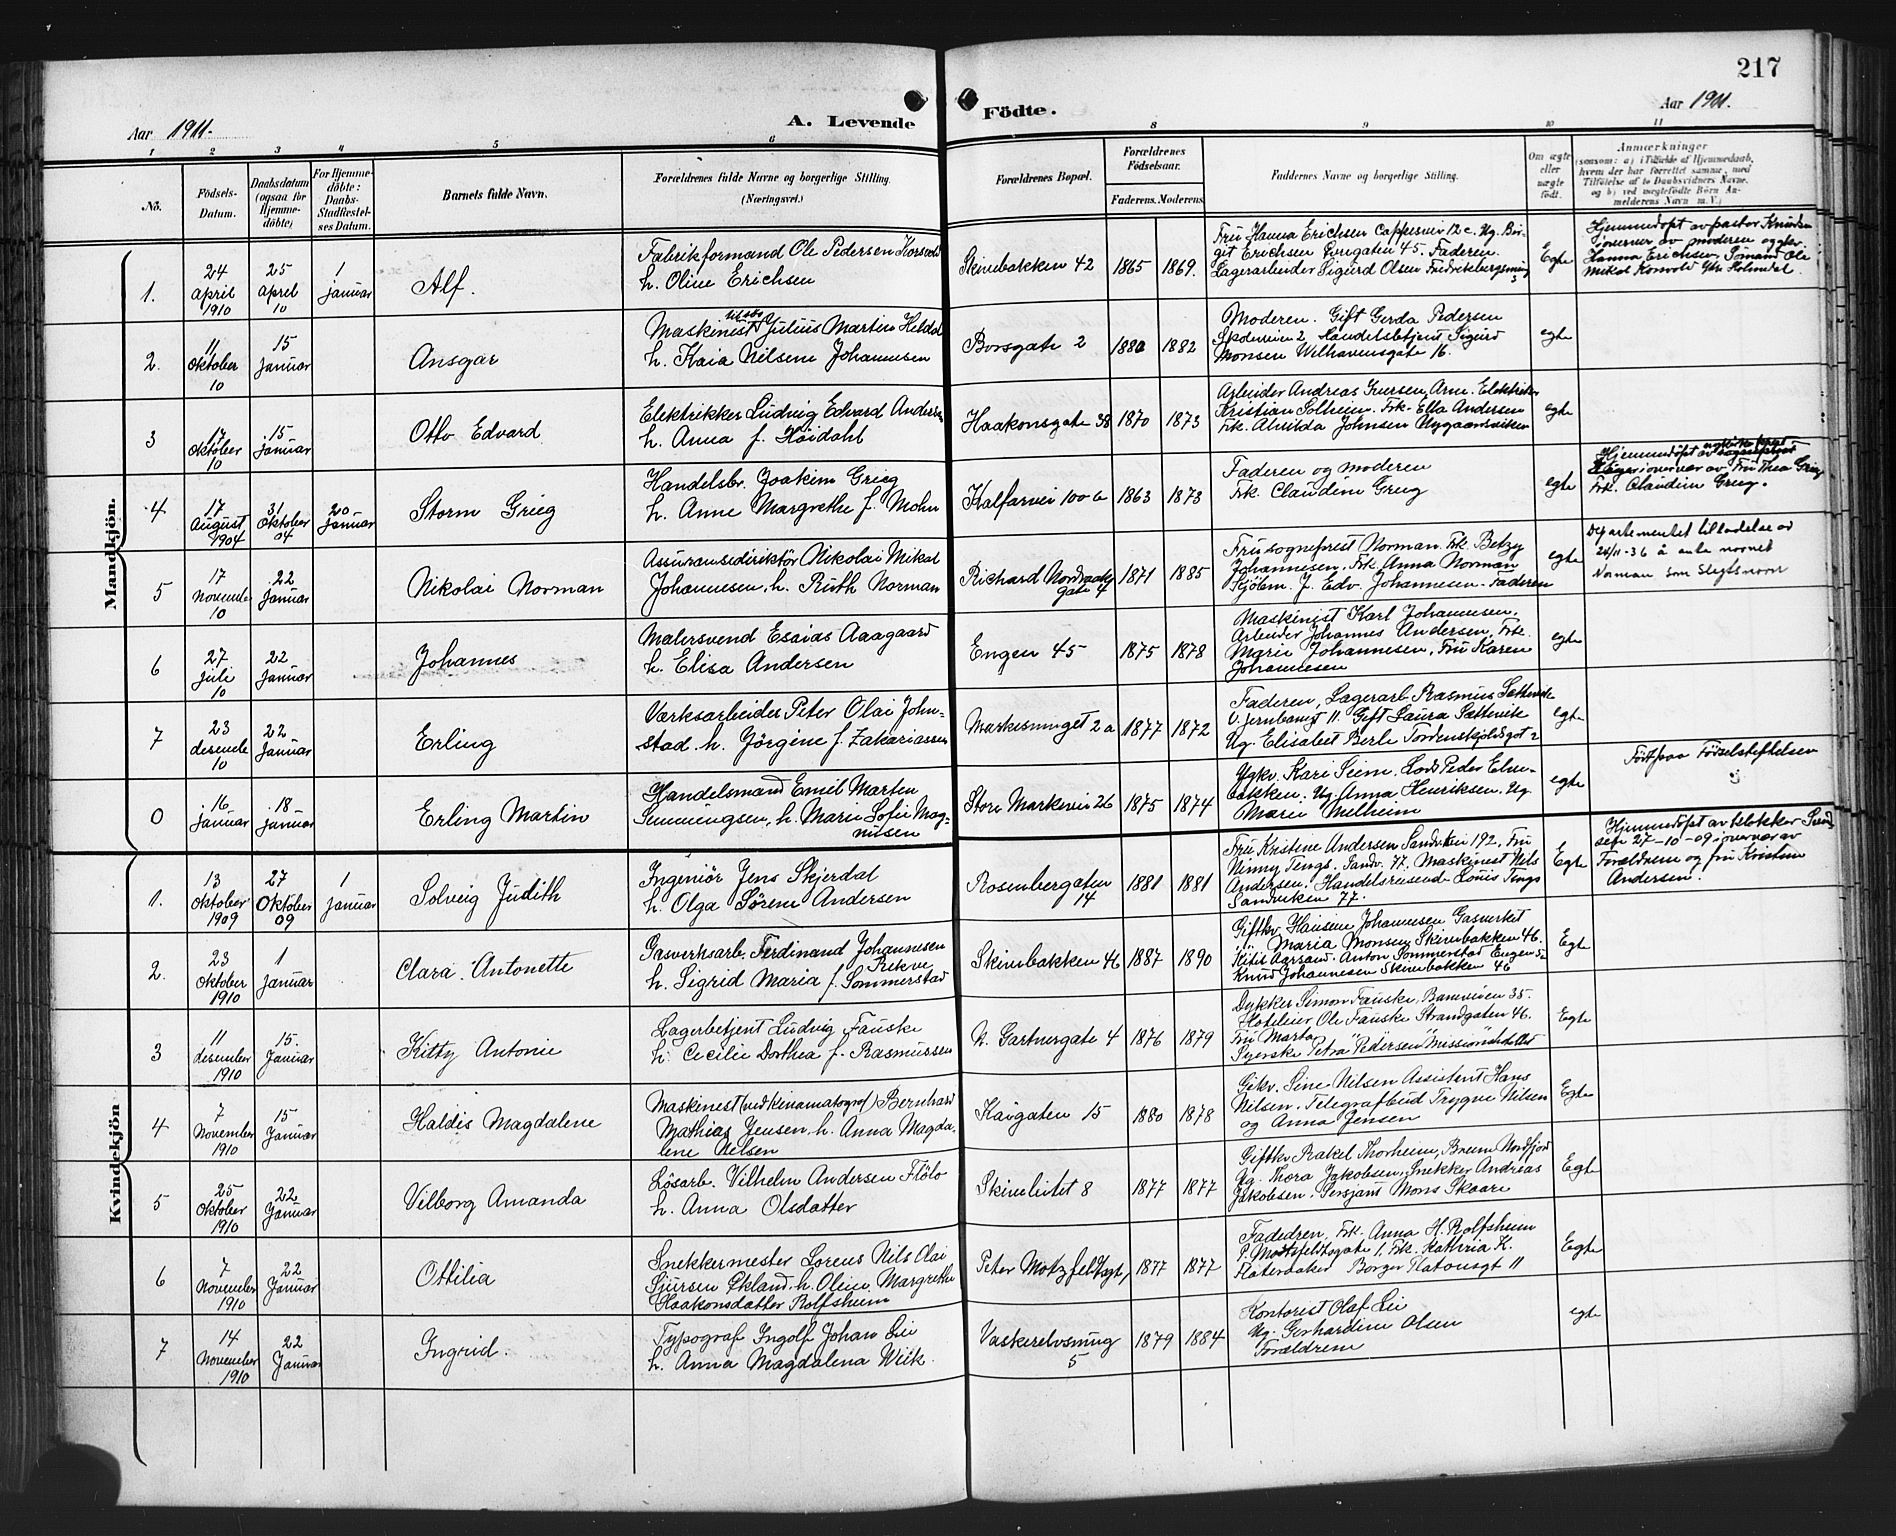 217
Aar 1911.
A. Levende Födte.
Aar 1911.
1 2 3 4 5 6 8 9 10 11
No.
Födsels-Datum.
Daabsdatum (ogsaa for Hjemmedöbte)
For Hjemmedöbte: Daabs-Stadfæstelses Datum.
Barnets fulde Navn.
Forældrenes fulde Navne og borgerlige Stilling. (Næringsvei.)
Forældrenes Bopæl.
Forældrenes Födselsaar.
Faderens. Moderens.
Faddernes Navne og borgerlige Stilling.
Om ægte eller uægte födt.
Anmærkninger
(saasom: a) i Tilfælde af Hjemmedaab, hvem der har forrettet samme, med Tilföielse af to Daabsvidners Navne, og b) ved uægtefödte Börn Anmelderens Navn m. V.)
Mandkjön.
1. 24 april 1910
25 april 10
1 januar
Alf.
Fabrikformand Ole Pedersen Korsvold
h. Oline Erichsen
Skivebakken 42
1865 1869.
Fru Hanna Erichsen Cappesvei 12 c. Ug. Bir-
git Erichsen 45. Faderen.
Lagerarbeider Sigurd Olsen Fredriksbergsmug 3
Egte
Hjemmedöpt av pastor Knudsen
i overvær av moderen og
Hanna Erichsen, Ole
Mikal Korsvold
2. 11 oktober 10
15 januar
Ansgar
Maskinist Julius Martin Heldal
h. Kaia Nilsine Johannesen
Borsgate 2
1880 1882
Moderen. Gift Gerda Pedersen
Skoleveien 2 Handelsbetjent Sigurd
Monsen Welhavensgate 16.
egte
3 17 oktober 10
15 januar
Otto Edvard
Elektrikker Ludvig Edvard Andersen
h. Anna f. Höidahl
Haakonsgate 38
1870 1873
Arbeider Andreas Iversen, Arne. Elektriker
Kristian Solheim. Frk. Ella Andersen
Frk. Alvilda Johnsen Nygaardsviken
egte
4 17 August 1904
31 Oktober 04
20 Januar
Storm Grieg
Handelsbr. Joakim Grieg
h. Anne Margrethe f. Mohn
Kalfarvei 100 a
1863 1873
Faderen og moderen
Frk. Claudine Grieg
egte
Hjemmedöpt av
i overvær av Fru Thea Grieg
Frk. Claudine Grieg.
5 17 Novembe 10
22 Januar
Nikolai Norman
Assuransedirektör Nikolai Mikal
Johannesen, h. Ruth Norman
Richard Nordraaks gate 4
1871 1885
Fru sogneprest Norman. Frk. Betzy
Johannesen. Frk Anna Norman
Skjölem. J. Edv. Johannesen. Faderen
egte
Departementet tilladelse av
24/11-36 å anta navnet
Norman som slegtsnavn
6 27 juli 10
22 Januar
Johannes
Malersvend Esaias Aaagaard
h. Elisa Andersen
Engen 45
1875 1878
Maskinist Karl Johannesen.
Arbeider Johannes Andersen, Frk.
Marie Johannesen, Fru Karen
Johannesen
egte
7 23 desembe 10
22 Januar
Erling
Værksarbeider Peter Olai John-
stad. h. Jörgine f. Zakariassen
Markismuget 2 a
1877 1872
Faderen, Lagerarb. Rasmus Sættevik
v. Jernbanegt 11. Gift Laura Sættevik
Ug. Elisabet Berle Tordenskjoldsgt 2
egte
0 16 januar
18 januar
Erling Martin
Handelsmand Emil Marten
Simmingsen, h. Marie Sofie Mag-
nusen
Store Markevei 26
1875 1874
Ygkv. Kari Seim. Lods Peder Elve-
bakken. Ug. Anna Henriksen. Ug
Marie Melheim
egte
Födt paa Födselsstiftelsen
Kvindekjön
1. 13 oktober 1909
27 Oktober 09
1 januar
Solveig Judith
Ingeniör Jens Skjerdal
h. Olga Sörine Andersen
Rosenbergaten 14
1881 1881
Fru Kristine Andersen Sandviken 192. Fru
Ninny Tengs. Sandv. 77. Maskinest Nils
Andersen. Handelsreisende Louis Tengs
Sandviken 77.
Egte
Hjemmedöpt av klokker
27-10-09 i overvær av
Forældrene og fru Kristine
Andersen.
2. 23 Oktober 1910
1 januar
Clara Antonette
Gasverksarb. Ferdinand Johannesen
Rekve
h. Sigrid Maria f. Sommerstad
Skivebakken 46
1887 1890
Giftkv. Hansine Johannesen Gasverket
Maria Monsen Skivebakken 46.
Aarsand. Anton Sommerstad Engen 52
Knud Johannesen Skivebakken 46
Egte
3 11 desember 1910
15. Januar
Kitty Antonie
Lagerbetjent Ludvig Fauske
h. Cecilie Dorthea f. Rasmussen
N. Gartnergate 4
1876 1879
Dykker Simon Fauske, Baneveien 35.
Hoteleier Ole Fauske Strandgaten 46.
Fru Marta
Syerske Petra Pedersen
Egte
4 7 November 1910
15 Januar
Haldis Magdalene
Maskinest (ved kinamatograf) Bernhard
Mathias Jensen, h. Anna Magda-
lene Nelsen
Kaigaten 15
1880 1878
Gikv. Sine Nilsen Assistent Hans
Nilsen. Telegrafbud Trygve Nilsen
og Anna Jensen
Egte
5 25 Oktober 1910
22 Januar
Vilborg Amanda
Lösarb. Vilhelm Andersen Flölo
h. Anna Olsdatter
Skivebakken 8
1877 1877
Giftkv. Rakel Thorheim, Breim Nordfjord
Ug. Thora Jakobsen, Snekker Andreas
Jakobsen. Sersjant Mons Skaare
Egte
6 7 November 1910
22 Januar
Ottilia
Snekkermester Lorens Nils Olai
Sjursen Ekland. h. Oline Margrethe
Haakonsdatter Rolfsheim
Peter Motzfeldtsgt,
1877 1877
Fadedren, Frk. Anna H. Rolfsheim
P. Motsfeldtsgate 1. Frk. Kathria K.
Flatebakker Borger Flatonsgt 11
Egte
7 14 November 1910
22 Januar
Ingrid.
Typograf Ingolf Johan Lie
h. Anna Magdalena Wiik.
Vaskerelvsmug 5
1879 1884
Kontorist Olaf Lie
Ug. Gerhardine Olsen
Forældrene
egte